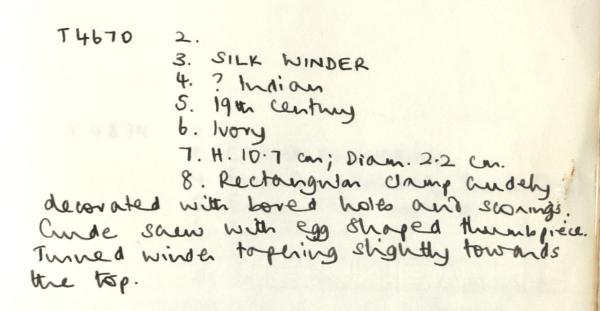 T4670 2.
3. SILK WINDER
4. ? Indian
5. 19th Century
6. Ivory
7. H. 10.7 cm; Diam. 2.2 cm.
8. Rectangular clamp crudely
decorated with bored holes and scorings.
Crude screw with egg shaped thumbpiece.
Turned winder tapering slightly towards
the top.